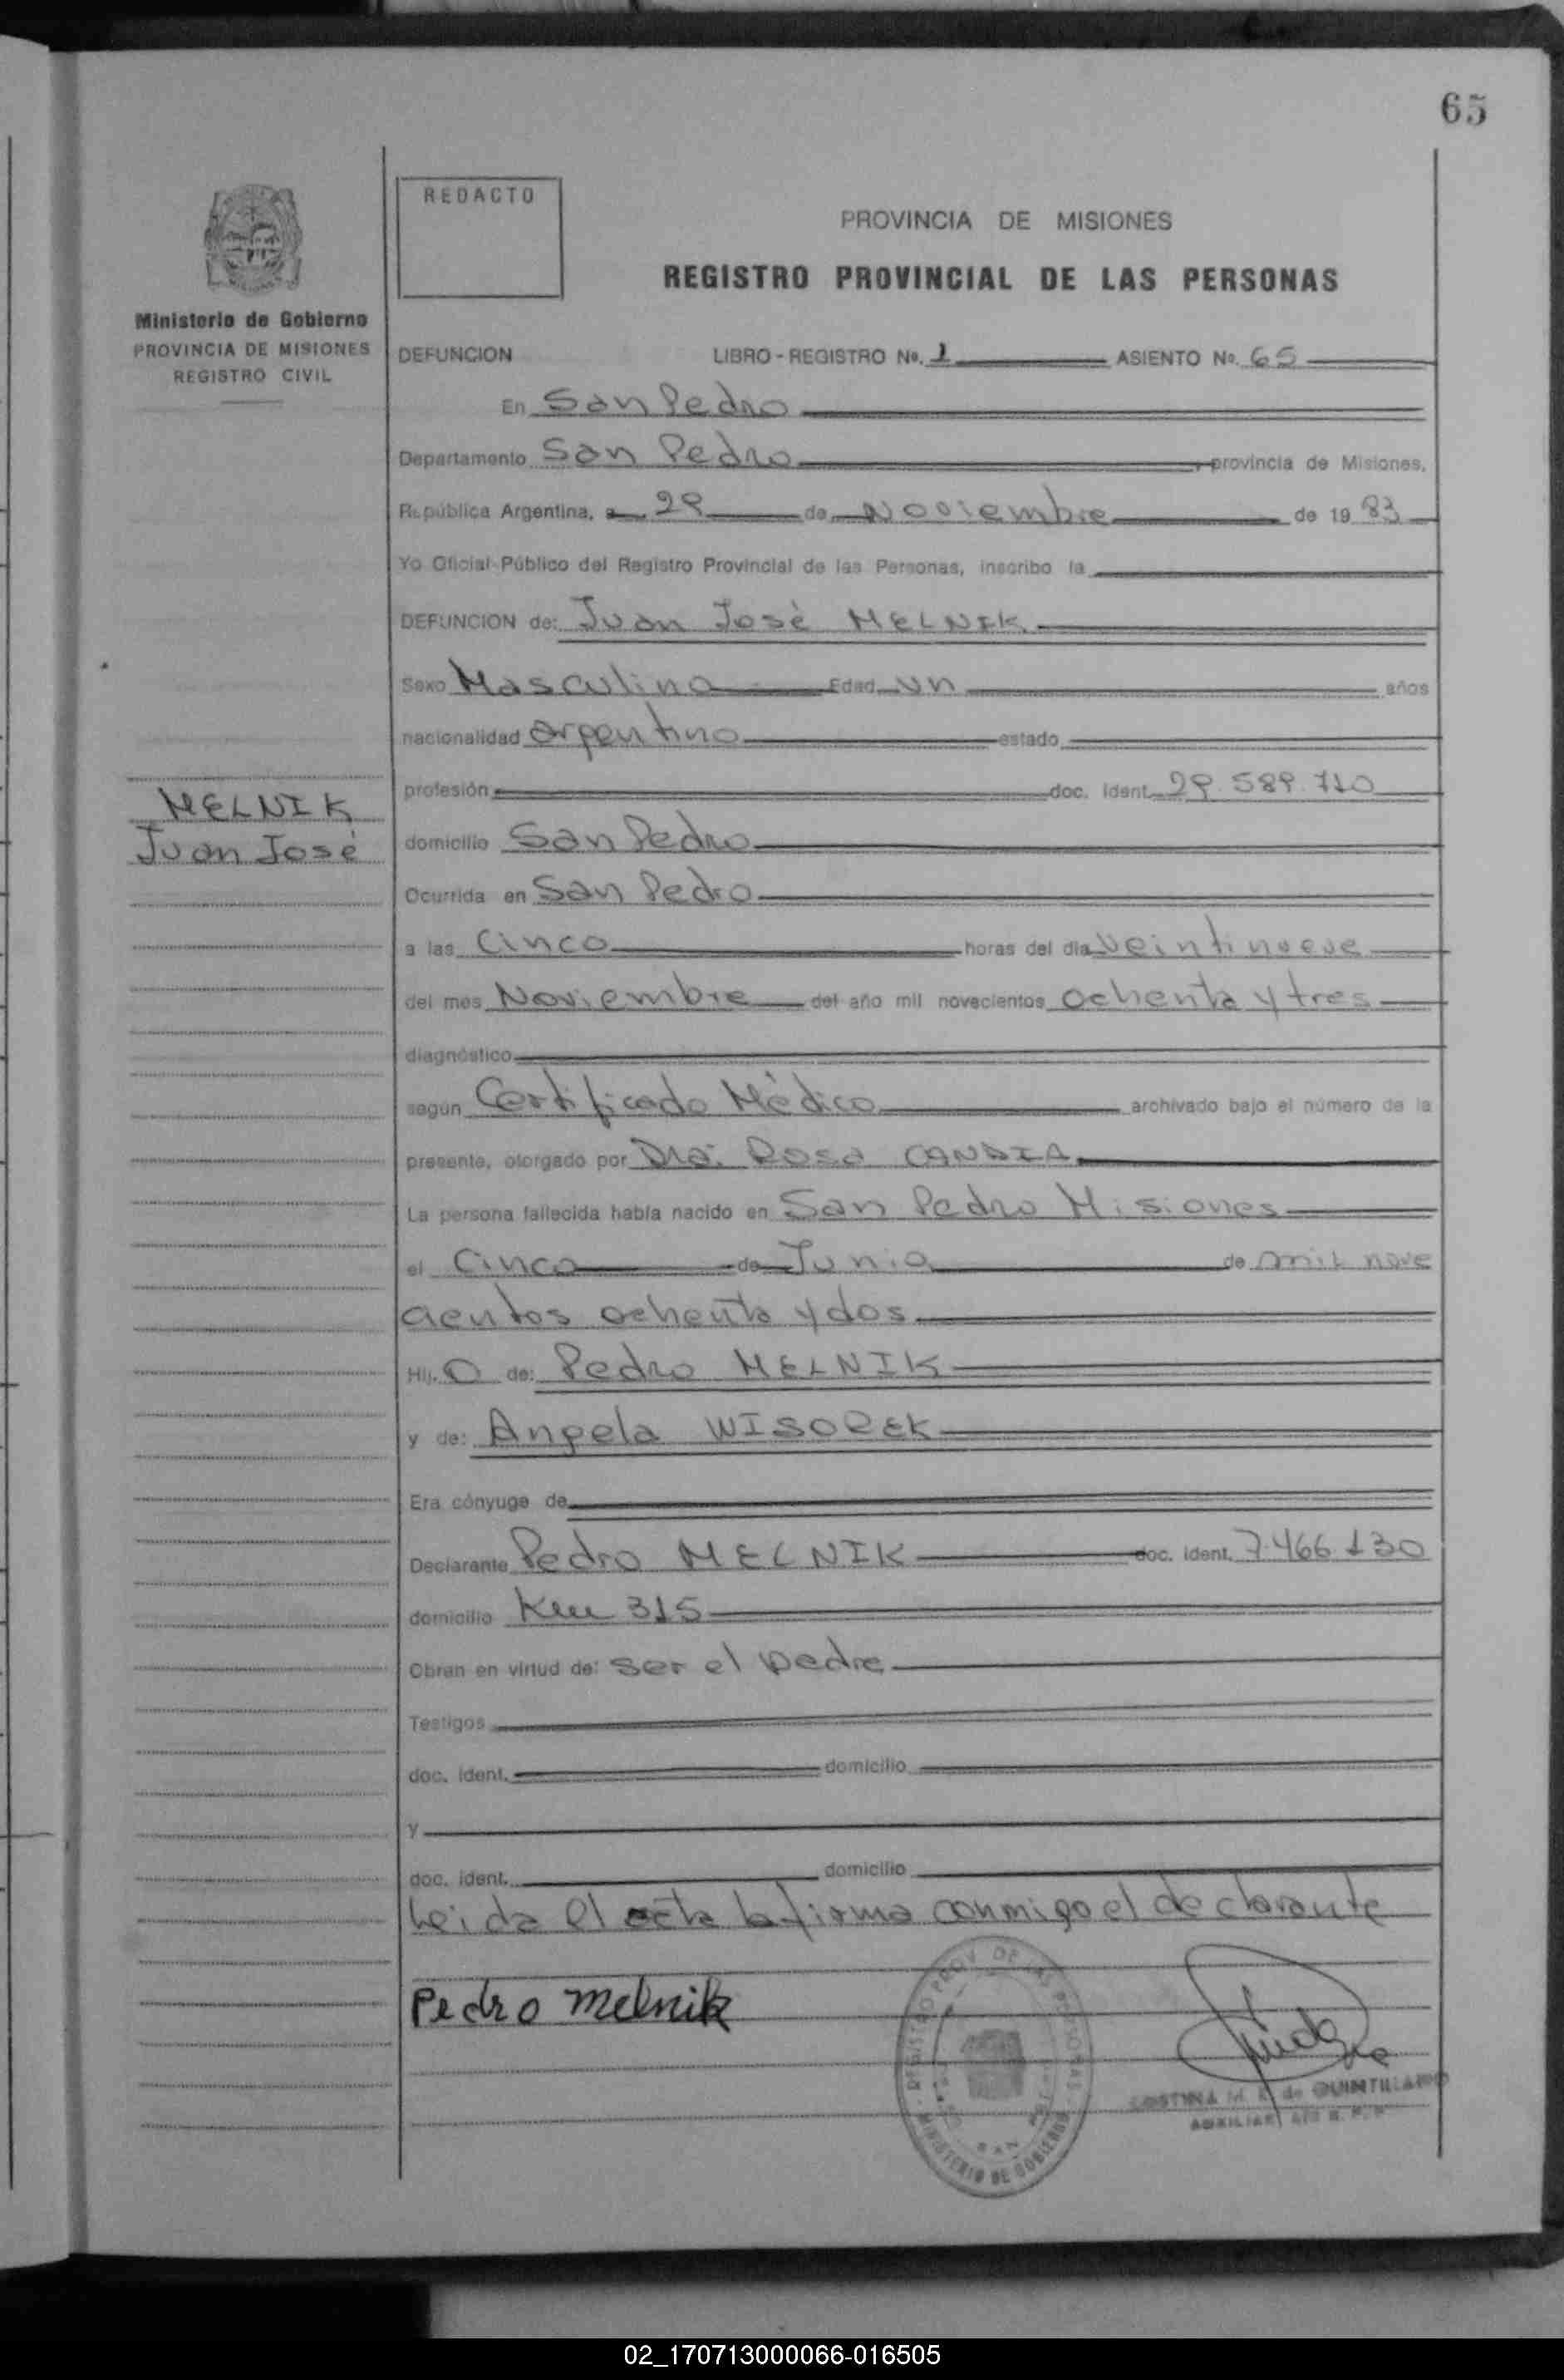 65
REDACTO
PROVINCIA DE MISIONES
REGISTRO PROVINCIAL DE LAS PERSONAS
Ministerio de Gobierno
PROVINCIA DE MISIONES
REGISTRO CIVIL
DEFUNCION LIBRO - REGISTRO No. 1 ASIENTO No. 65
En San Pedro
Departamento San Pedro provincia de Misiones,
República Argentina, a 29 de Noviembre de 19 83
Yo Oficial Público del Registro Provincial de las Personas, inscribo la
DEFUNCION de: Juan José MELNIK
Sexo Masculino Edad un años
nacionalidad argentino estado
profesión doc. ident. 29.589.710
MELNIK
Juan José
domicilio San Pedro
Ocurrida en San Pedro
a las Cinco horas del día veintinueve
del mes Noviembre del año mil novecientos ochenta y tres
diagnóstico
según Certificado Médico archivado bajo el número de la
presente, otorgado por Dra. Rosa CANDIA
La persona fallecida había nacido en San Pedro Misiones
el Cinco de Junio de mil nove
cientos ochenta y dos
Hij. o de: Pedro MELNIK
y de: Angela WISOREK
Era cónyuge de
Declarante Pedro MELNIK doc. ident. 7.466.130
domicilio Km 315
Obran en virtud de: ser el padre
Testigos
doc. ident. domicilio
y
doc. ident. domicilio
Leida el acta la firma conmigo el declarante
Pedro Melnik
REGISTRO PROV. DE LAS PERSONAS
MINISTERIO DE GOBIERNO
SAN
de QUINTILLANO
AUXILIAR
02_170713000066-016505